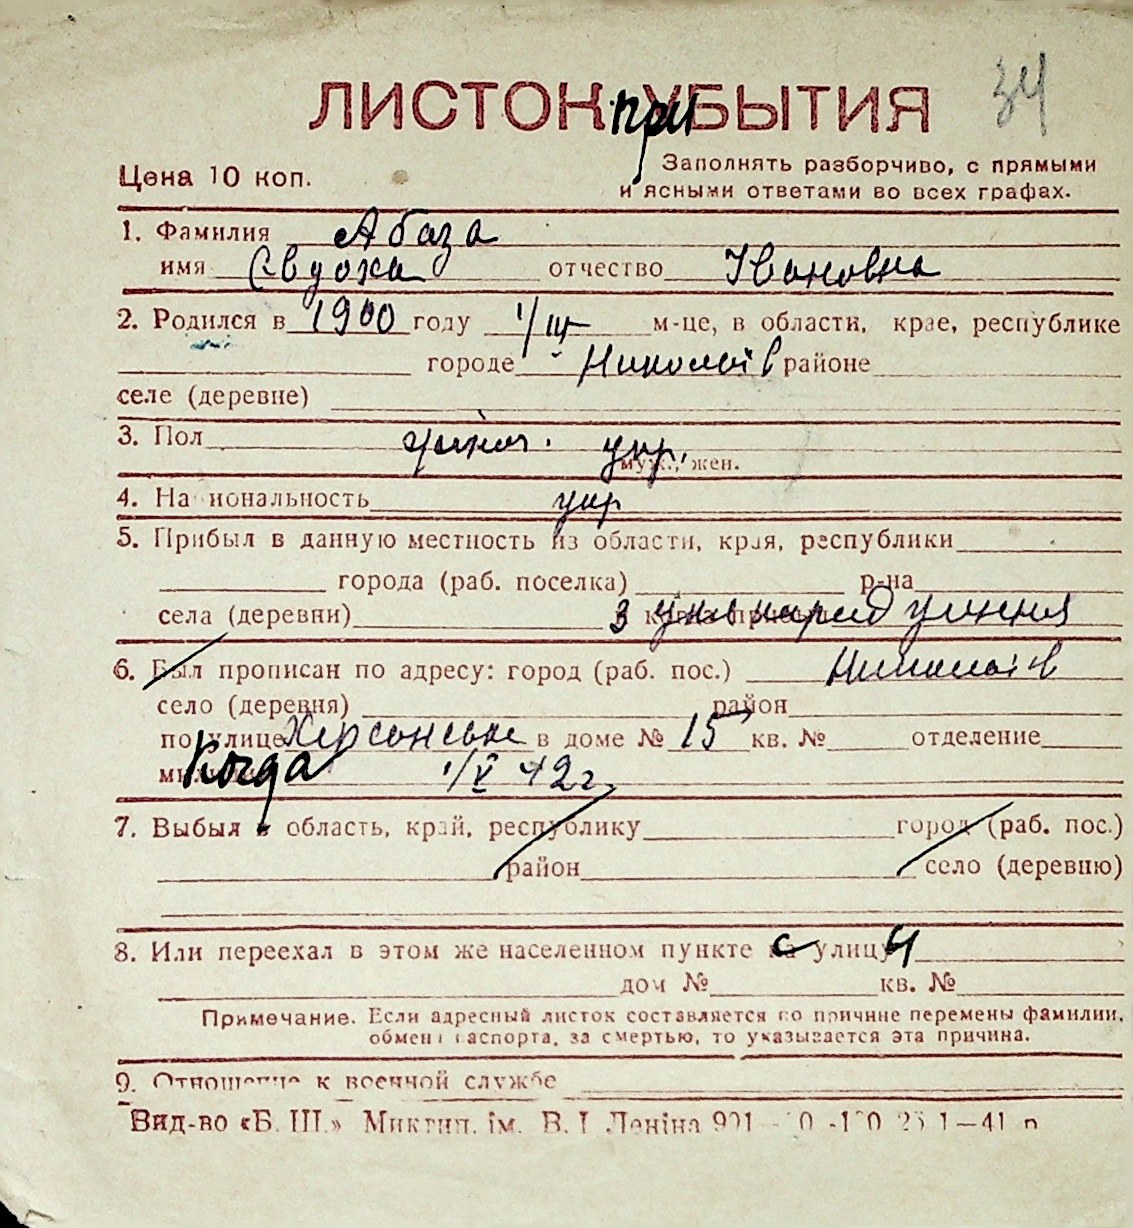 ЛИСТОК прИБЫТИЯ
34
Цена 10 коп.
Заполнять разборчиво, с прямыми
и ясными ответами во всех графах.
1. Фамилия Абаза
имя Євдоха отчество Івановна
2. Родился в 1900 году 1/III м-це, в области, крае, республике
городе Миколаїв районе
селе (деревне)
3. Пол жіноч. укр.
муж., жен.
4. Национальность укр
5. Прибыл в данную местность из области, края, республики
города (раб. поселка) р-на
села (деревни) З
6. Был прописан по адресу: город (раб. пос.) Миколаїв
село (деревня) район
по улице Херсонське в доме № 15 кв. № отделение
Когда 1/V 42 г.
7. Выбыл в область, край, республику город (раб. пос.)
район село (деревню)
8. Или переехал в этом же населенном пункте с улицы
дом № кв. №
Примечание. Если адресный листок составляется по причине перемены фамилии,
обмена паспорта, за смертью, то указывается эта причина.
9. Отношение к военной службе
Вид-во «Б. Ш.» Миктип. ім. В. І. Леніна 1—41 р